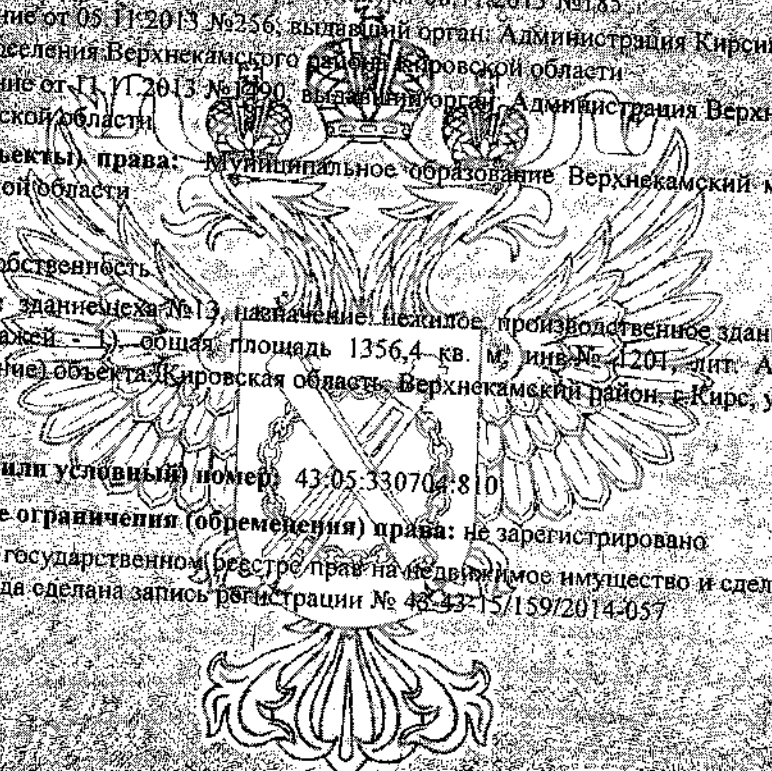 05.11.2013 №185
ние от 05.11.2013 №256, выдавший орган: Администрация Кирсин
оселения Верхнекамского района Кировской области
ние от 11.11.2013 выдавший орган: Администрация Верхн
ской области
ъекты) права: Муниципальное образование Верхнекамский м
кой области
обственность
здание цеха №13, назначение: нежилое, производственное здан
ажей - 1), общая площадь 1356,4 кв. м, инв.№ 1201, лит. А
ние) объекта: Кировская область, Верхнекамский район, г. Кирс, у
или условный) номер: 43:05:330704:810
е ограничения (обременения) права: не зарегистрировано
государственном реестре прав на недвижимое имущество и сдел
да сделана запись регистрации № 43-43-15/159/2014-057